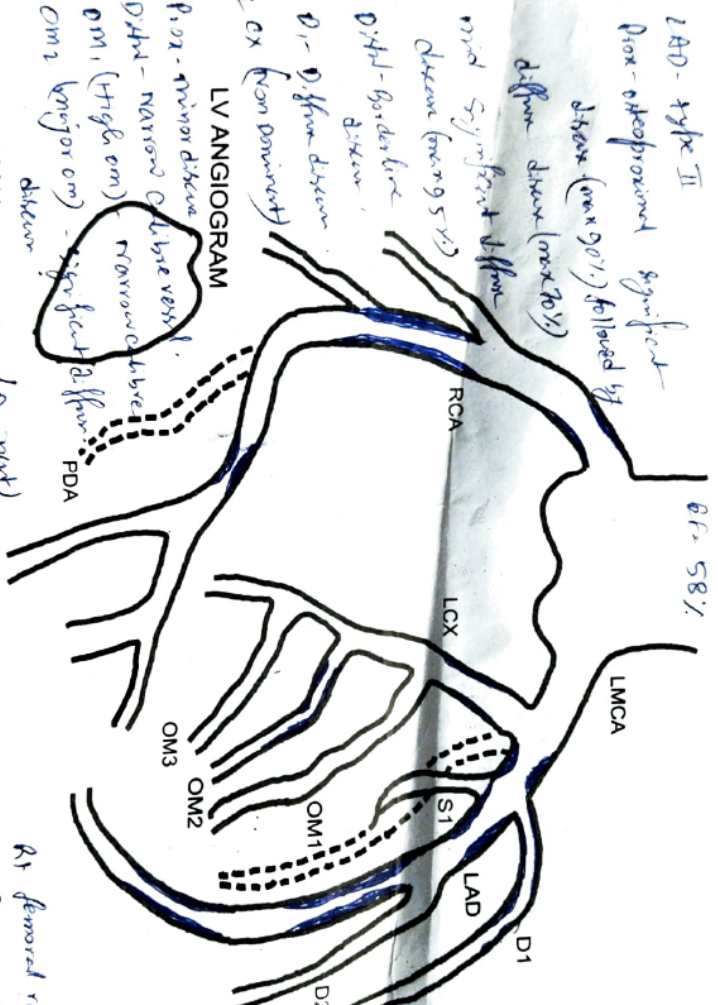 LAD - type III
Prox - osteoproximal significant
disease (max 90%) followed by
diffuse disease (max 70%)
mid significant diffuse
disease (max 95%)
Distal - Borderline
disease.
D1 - Diffuse disease
CX (Non Dominant)
Prox - minor disease
Distal - narrow calibre vessel.
OM1 (High om) - narrow calibre
OM2 (major om) - significant diffuse
disease
EF- 58%
LV ANGIOGRAM
RCA
PDA
LCX
LMCA
OM3
OM2
OM1
S1
LAD
D1
D2
Rt femoral